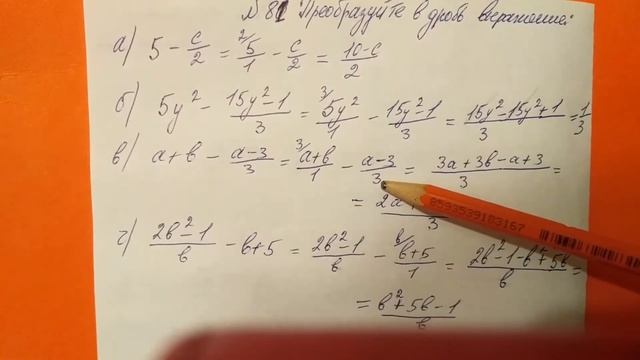 № 81 Преобразуйте в дробь выражение:
а) 5 - c/2 = ²⁄5/1 - c/2 = 10-c/2
б) 5y² - 15y²-1/3 = ³⁄5y²/1 - 15y²-1/3 = 15y²-15y²+1/3 = 1/3
в) a+b - a-3/3 = ³⁄a+b/1 - a-3/3 = 3a+3b-a+3/3 =
= 2a+ /3
8593539103167
г) 2b²-1/b - b+5 = 2b²-1/b - ᵇ⁄b+5/1 = 2b²-1-b²+5b/b =
= b²+5b-1/b